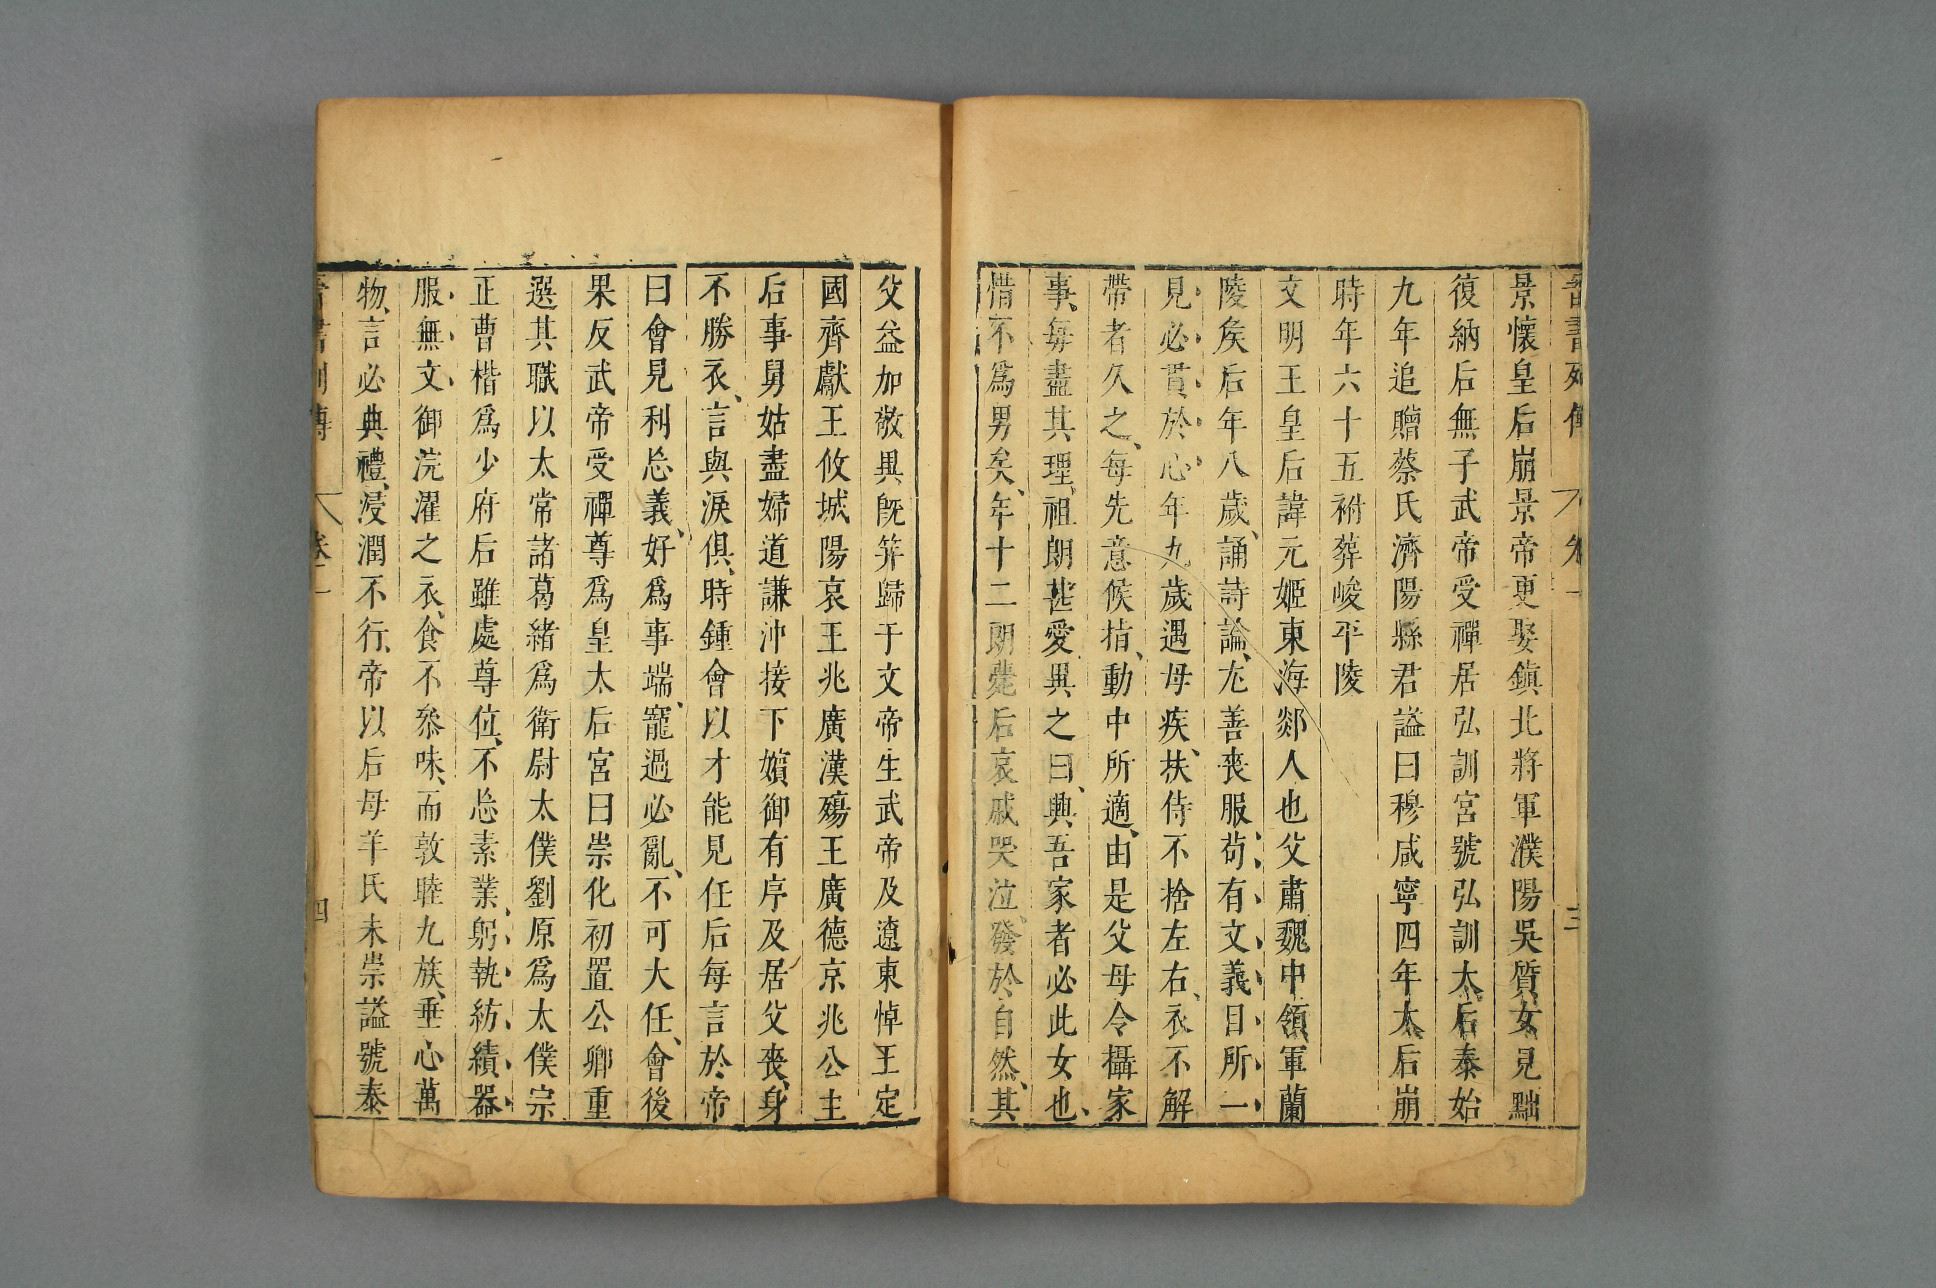 晉書列傳 卷一 三
景懷皇后崩景帝更娶鎮北將軍濮陽吳質女見黜
復納后無子武帝受禪居弘訓宮號弘訓太后泰始
九年追贈蔡氏濟陽縣君謚曰穆咸寧四年太后崩
時年六十五祔葬峻平陵
文明王皇后諱元姬東海郯人也父肅魏中領軍蘭
陵矦后年八歲、誦詩論、尤善喪服、苟有文義目所一
見必貫於心年九歲遇母疾、扶侍不捨左右、衣不解
帶者久之、每先意候指、動中所適、由是父母令攝家
事、每盡其理、祖朗甚愛異之曰、興吾家者必此女也、
惜不爲男矣、年十二朗薨后哀戚哭泣、發於自然、其
父益加敬異旣筓歸于文帝生武帝及遼東悼王定
國齊獻王攸城陽哀王兆廣漢殤王廣德京兆公主
后事舅姑盡婦道謙沖接下嬪御有序及居父喪、身
不勝衣、言與淚俱、時鍾會以才能見任后每言於帝
曰會見利忘義、好爲事端、寵過必亂、不可大任、會後
果反武帝受禪尊爲皇太后宮曰崇化初置公卿重
選其職以太常諸葛緒爲衛尉太僕劉原爲太僕宗
正曹楷爲少府后雖處尊位、不忘素業、躬執紡績器
服無文御浣濯之衣、食不叅味、而敦睦九族、垂心萬
物、言必典禮、浸潤不行、帝以后母羊氏未崇謚號泰
晉書列傳 卷一 四